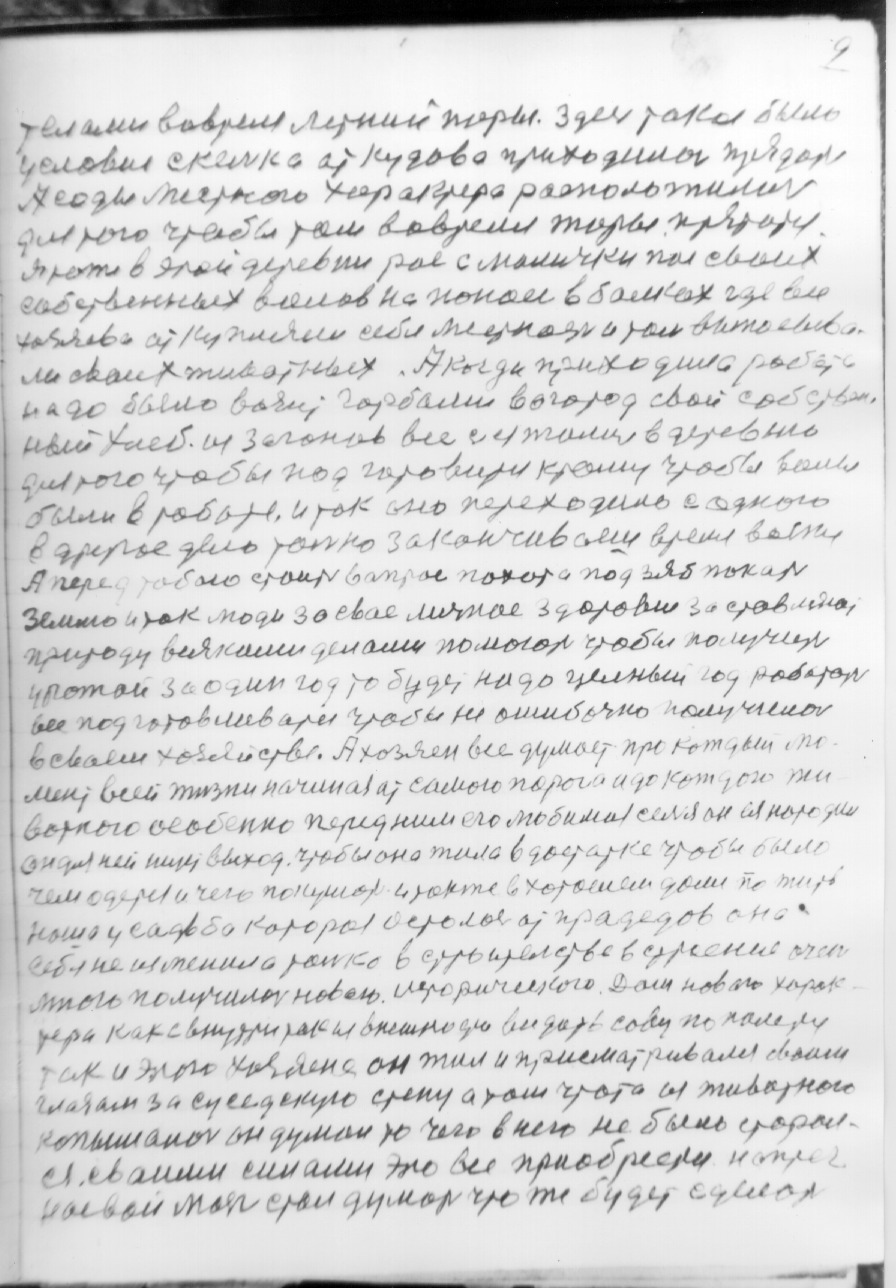 9
телами вовремя летний поры. Здеч такая было
условие скемка от кудова приходилоч прядат
А соды местного характера расположилич
для того чтобы там вовремя жары прятати.
Я тоже в этой деревни рос с маличку пас своих
собственных волов на попасе в балках где все
хозяева откупляли себе местност и там выпасыва-
ли своих животных. А когда приходила работа
надо было возит горбами вогород свой собствен.
ный хлеб. из загонов все сежалис в деревню
для того чтобы под готовити кормы чтобы волы
были в работе. и так оно переходило с одного
в другое дело толко заканчиваеш время возки
А перед тобою стоит вапрос похота под зяб покат
землю и так люди за свое личное здоровие заставляют
природу всякими делами помогат чтобы получит
урожай за один год то будет надо целный год работат
все подготовливати чтобы не ошибочно получилос
в своем хозяйстве. А хозяен все думает про каждый мо-
мент всей жизни начиная от самого порога и до каждого жи-
вотного особенно перед ним его любимая семя он ея народил
он для ней ищет выход. чтобы она жила в достатке чтобы было
чем одется и чего покушат. и также в хорошем доми пожить
наша усадба которая осталас от прадедов она
себя не изменила толко в строителстве в строение очен
много получилос новаю. исторического. Дом новаго харак-
тера как свнутри так и внешнодю видать сову по полету
так и этого хозяена он жил и присматривался своим
глазам за суседскую стену а там чтота из животного
копышалос он думал то чего в него не было старал-
ся. своими силами это все приобрести напрег
насвой мозг стал думат что же будет сделат